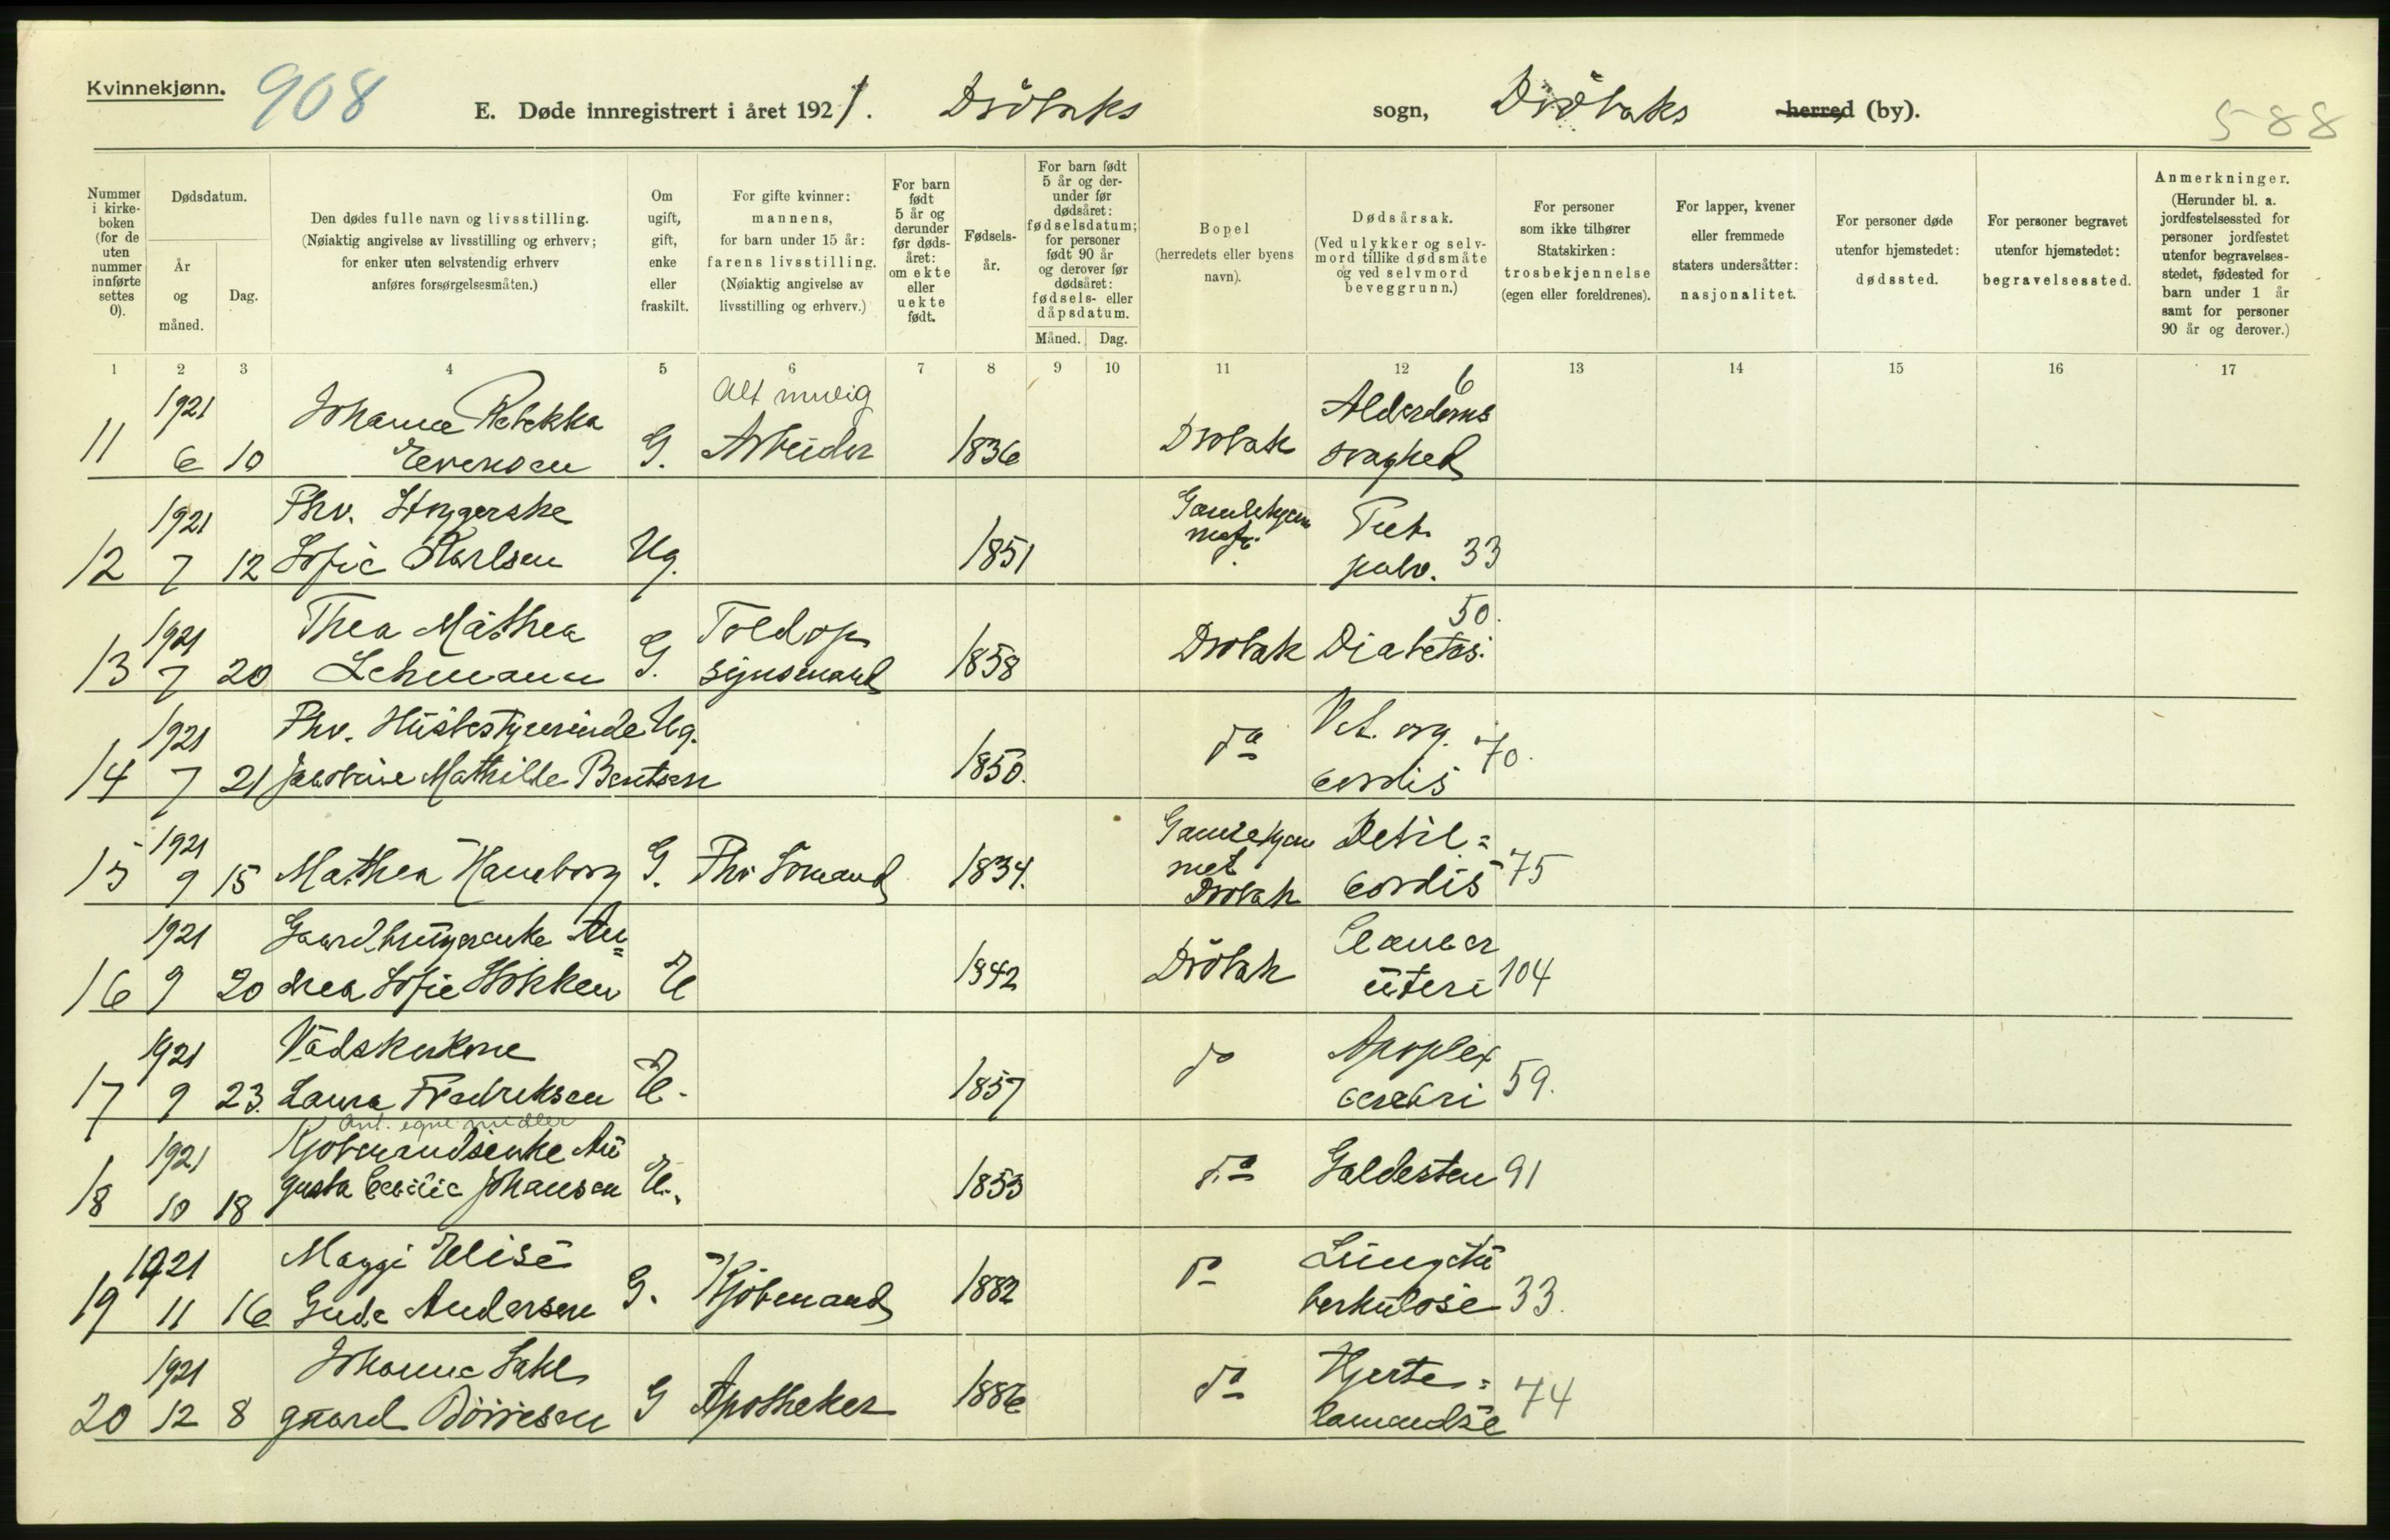 Kvinnekjønn.
908
E. Døde innregistrert i året 1921. Drøbaks sogn, Drøbaks herred (by).
588
Nummer i kirkeboken (for de uten nummer innførte settes 0).
Dødsdatum.
År og måned.
Dag.
Den dødes fulle navn og livsstilling.
(Nøiaktig angivelse av livsstilling og erhverv;
for enker uten selvstendig erhverv
anføres forsørgelsesmåten.)
Om ugift, gift, enke eller fraskilt.
For gifte kvinner:
mannens,
for barn under 15 år:
farens livsstilling.
(Nøiaktig angivelse av
livsstilling og erhverv.)
For barn født 5 år og derunder før dødsåret: om ekte eller uekte født.
Fødselsår.
For barn født 5 år og derunder før dødsåret: fødselsdatum; for personer født 90 år og derover før dødsåret: fødsels- eller dåpsdatum.
Måned. Dag.
Bopel
(herredets eller byens
navn).
Dødsårsak.
(Ved ulykker og selvmord tillike dødsmåte og ved selvmord beveggrunn.)
For personer
som ikke tilhører
Statskirken:
trosbekjennelse
(egen eller foreldrenes).
For lapper, kvener
eller fremmede
staters undersåtter:
nasjonalitet.
For personer døde
utenfor hjemstedet:
dødssted.
For personer begravet
utenfor hjemstedet:
begravelsessted.
Anmerkninger.
(Herunder bl. a.
jordfestelsessted for
personer jordfestet
utenfor begravelsesstedet, fødested for
barn under 1 år
samt for personer
90 år og derover.)
1 2 3 4 5 6 7 8 9 10 11 12 13 14 15 16 17
11 1921 6 10 Johanne Rebekka Evensen G. Alt mulig Arbeider 1836 Drøbak Alderdoms svaghed 6
12 1921 7 12 Fhv. Sofie Karlsen Ug. 1851 Gamlehjem met. Tub. pulm. 33
13 1921 7 20 Thea Mathea Lehmann G. Toldop synsmand 1858 Drøbak Diabetes. 50.
14 1921 7 21 Fhv. Husbestyrerinde Jakobine Mathilde Bentsen Ug. 1850. do Vit. org. cordis 70.
15 1921 9 15 Mathea Hamborg G. Fhv Sømand 1834. Gamlehjem met Drøbak Debil= cordis 75
16 1921 9 20 Gaardbrugerenke An= drea Sofie Hokken E 1842 Drøbak Cancer uteri 104
17 1921 9 23. Vadskekone Laura Fredriksen E. 1857 do Apoplex cerebri 59.
18 1921 10 18 Ant. egne midler Kjøbmandsenke Au gusta Cecilie Johansen E. 1853 do Galdesten 91
19 1921 11 16 Maggi Elise Gude Andersen G. Kjøbmand 1882 do Lungetu berkulose 33.
20 1921 12 8 Johanne gaard Børresen G Apotheker 1886 do Hjerte= lammelse 74